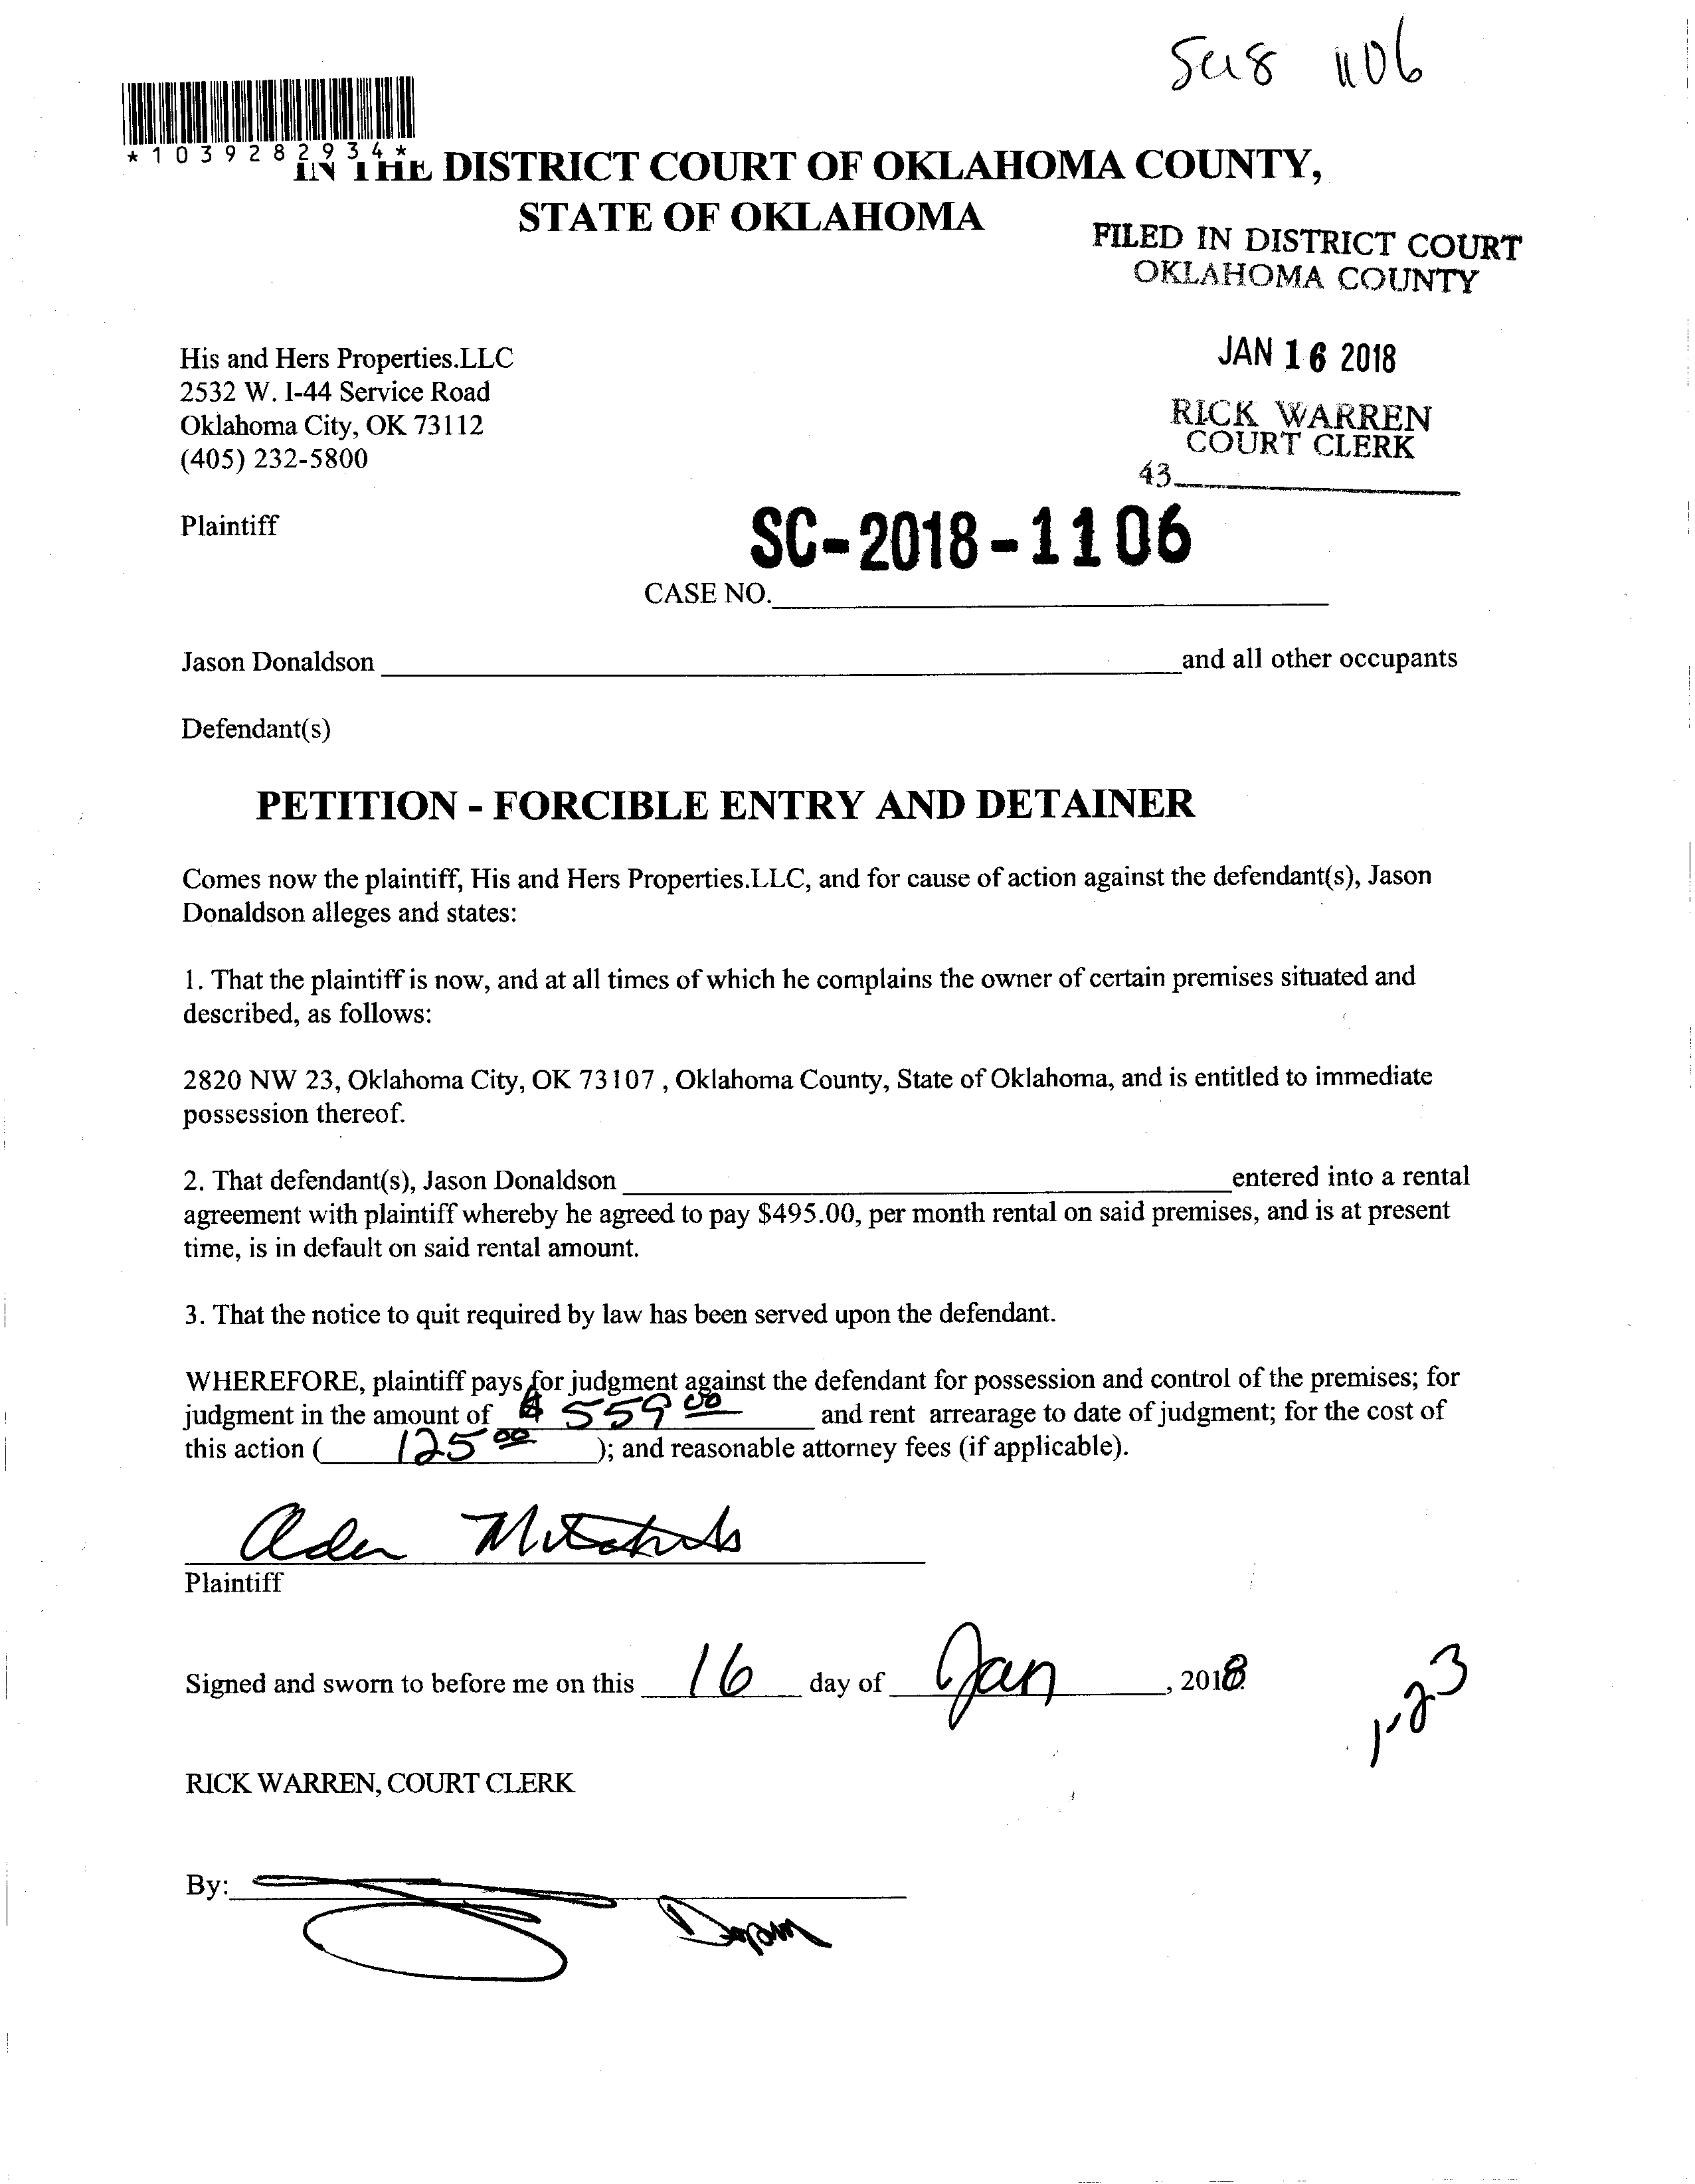 1106
*1039282934*
IN THE DISTRICT COURT OF OKLAHOMA COUNTY,
STATE OF OKLAHOMA
FILED IN DISTRICT COURT
OKLAHOMA COUNTY
JAN 16 2018
RICK WARREN
COURT CLERK
43
His and Hers Properties.LLC
2532 W. I-44 Service Road
Oklahoma City, OK 73112
(405) 232-5800
Plaintiff
SC-2018-1106
CASE NO.
Jason Donaldson and all other occupants
Defendant(s)
PETITION - FORCIBLE ENTRY AND DETAINER
Comes now the plaintiff, His and Hers Properties.LLC, and for cause of action against the defendant(s), Jason
Donaldson alleges and states:
1. That the plaintiff is now, and at all times of which he complains the owner of certain premises situated and
described, as follows:
2820 NW 23, Oklahoma City, OK 73107 , Oklahoma County, State of Oklahoma, and is entitled to immediate
possession thereof.
2. That defendant(s), Jason Donaldson entered into a rental
agreement with plaintiff whereby he agreed to pay $495.00, per month rental on said premises, and is at present
time, is in default on said rental amount.
3. That the notice to quit required by law has been served upon the defendant.
WHEREFORE, plaintiff pays for judgment against the defendant for possession and control of the premises; for
judgment in the amount of $ 559 00 and rent arrearage to date of judgment; for the cost of
this action ( 125 00 ); and reasonable attorney fees (if applicable).
Plaintiff
Signed and sworn to before me on this 16 day of Jan , 2018
1-23
RICK WARREN, COURT CLERK
By: